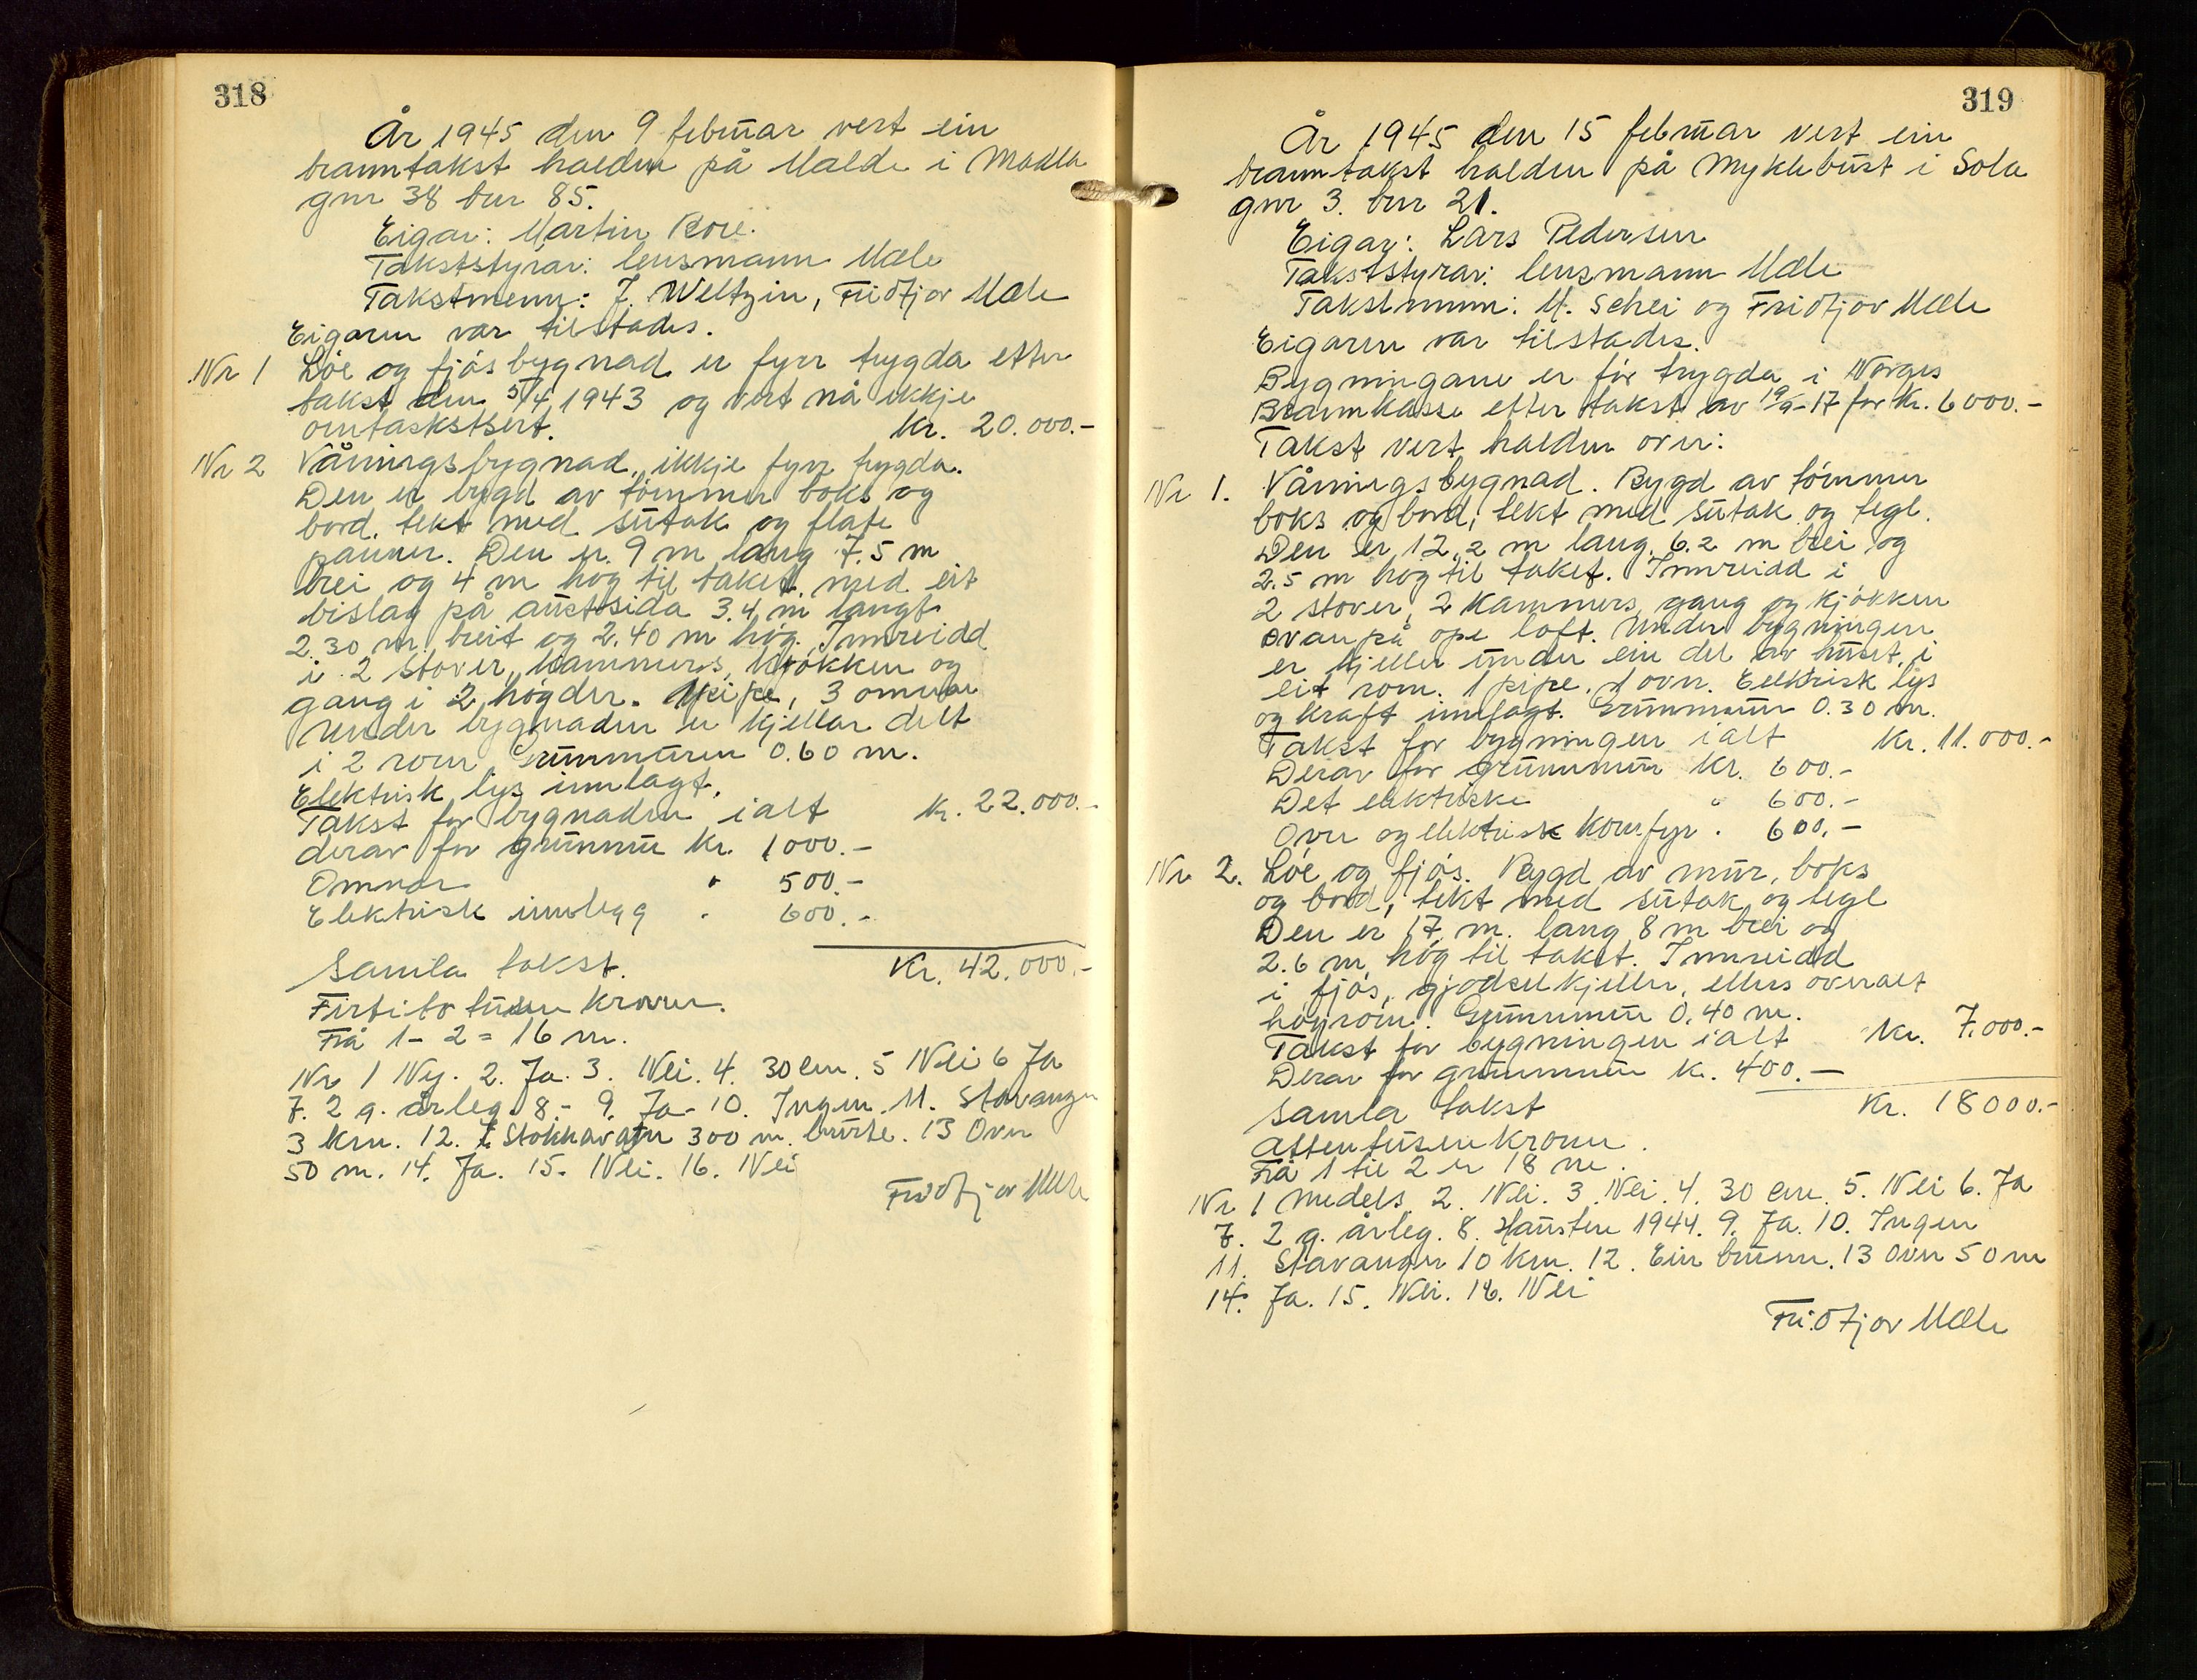 318
År 1945 den 9 februar vert ein
branntakst halden på Malde i Madla
gnr 38 bnr 85.
Eigar: Martin Bore.
Takststyrar: lensmann Mæle
Takstmenn: J. Weltzin, Fridtjov Mæle
Eigaren var tilstades.
Nr 1 Löe og fjösbygnad er fyrr trygda etter
takst den 5/4 1943 og vert nå ikkje
omtaskstsert. kr. 20.000.-
Nr 2 Våningsbygnad, ikkje fyrr trygda.
Den er bygd av tömmer boks og
bord, tekt med sutak og flate
panner. Den er 9 m lang 7.5 m
brei og 4 m hög til taket, med eit
bislag på austsida 3.4 m langt
2.30 m breit og 2.40 m hög. Innreidd
i 2 stover, kammers, kjökken og
gang i 2 högder. 1 pipe, 3 omnar
Under bygnaden er kjellar delt
i 2 rom Grunnmuren 0.60 m.
Elektrisk lys innlagt.
Takst for bygnaden ialt kr. 22.000.-
derav for grunnmur kr. 1000.-
Omnar " 500.-
Elektrisk innlegg " 600.-
Samla takst. Kr. 42.000.-
Firtito tusen kroner.
Frå 1 - 2 = 16 m.
Nr 1 Ny. 2. Ja. 3. Nei. 4. 30 cm. 5 Nei 6 Ja
7. 2 g. årleg. 8. - 9. Ja - 10. Ingen. 11. Stavanger
3 km. 12. Stokkavatn 300 m. burte. 13 Over
50 m. 14. Ja. 15. Nei. 16. Nei
Fridtjov Mæle
319
År 1945 den 15 februar vert ein
branntakst halden på Myklebust i Sola
gnr 3. bnr 21.
Eigar: Lars Pedersen
Takststyrar: lensmann Mæle
Takstmenn: M. Schei og Fridtjov Mæle
Eigaren var tilstades.
Bygningane er för trygda i Norges
Brannkasse etter takst av 19/9-17 for kr. 6000.-
Takst vert halden over:
Nr 1. Våningsbygnad. Bygd av tömmer
boks og bord, tekt med sutak og tegl.
Den er 12,2 m lang, 6.2 m brei og
2.5 m hög til taket. Innreidd i
2 stover, 2 kammers, gang og kjökken
ovanpå ope loft. Under bygningen
er kjeller under ein del av huset, i
eit rom. 1 pipe, 1 ovn. Eelktrisk lys
og kraft innlagt. Grunnmur 0.30 m.
Takst for bygningen ialt kr. 11.000.-
Derav for grunnmur kr. 600.-
Det elektriske " 600.-
Ovn og elektrisk komfyr " 600.-
Nr 2. Löe og fjös. Bygd av mur, boks
og bord, tekt med sutak og tegl
Den er 17 m. lang 8 m brei og
2.6 m hög til taket. Innreidd
i fjös, gjödselkjeller, ellers overalt
höyrom. Grunnmur 0,40 m.
Takst for bygningen ialt kr. 7.000.-
Derav for grunnmur kr. 400.-
Samla takst Kr. 18000.-
Attentusen kroner.
Frå 1 til 2 er 18 m.
Nr 1 Medels. 2. Nei. 3. Nei. 4. 30 cm. 5. Nei 6. Ja
7. 2 g. årleg. 8. Hausten 1944. 9. Ja. 10. Ingen
11. Stavanger 10 km. 12. Ein brunn. 13 Over 50 m
14. Ja. 15. Nei. 16. Nei
Fridtjov Mæle